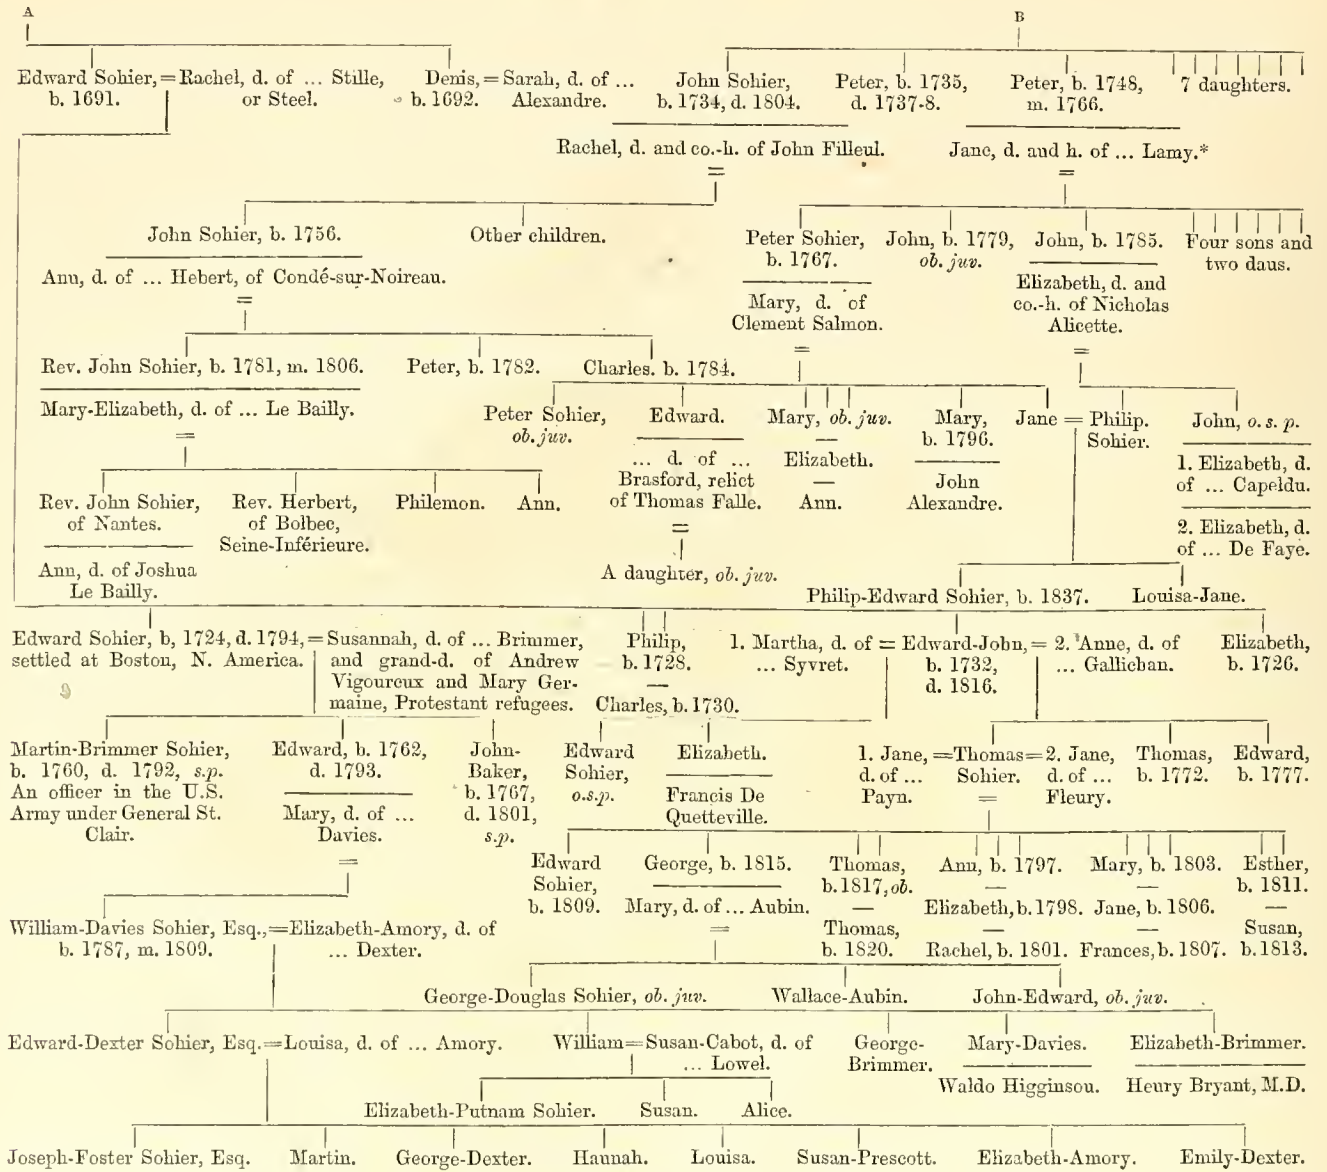 A
B
Edward Sohier, = Rachel, d. of ... Stille,
b. 1691.
or Steel.
Denis, = Sarah, d. of ...
b. 1692.
Alexandre.
John Sohier,
b. 1734, d. 1804.
Peter, b. 1735,
d. 1737-8.
Peter, b. 1748,
m. 1766.
7 daughters.
Rachel, d. and co.-h. of John Filleul.
=
Jane, d. and h. of ... Lamy.*
=
John Sohier, b. 1756.
Ann, d. of ... Hebert, of Condé-sur-Noireau.
=
Other children.
Peter Sohier,
b. 1767.
Mary, d. of
Clement Salmon.
=
John, b. 1779,
ob. juv.
John, b. 1785.
Elizabeth, d. and
co.-h. of Nicholas
Alicette.
=
Four sons and
two daus.
Rev. John Sohier, b. 1781, m. 1806.
Mary-Elizabeth, d. of ... Le Bailly.
=
Peter, b. 1782.
Charles. b. 1784.
Peter Sohier,
ob. juv.
Edward.
... d. of ...
Brasford, relict
of Thomas Falle.
=
A daughter, ob. juv.
Mary, ob. juv.
—
Elizabeth.
—
Ann.
Mary,
b. 1796.
John
Alexandre.
Jane = Philip.
Sohier.
John, o. s. p.
1. Elizabeth, d.
of ... Capeldu.
2. Elizabeth, d.
of ... De Faye.
Rev. John Sohier,
of Nantes.
Ann, d. of Joshua
Le Bailly.
Rev. Herbert,
of Bolbec,
Seine-Inférieure.
Philemon.
Ann.
Philip-Edward Sohier, b. 1837.
Louisa-Jane.
Edward Sohier, b, 1724, d. 1794, = Susannah, d. of ... Brimmer,
settled at Boston, N. America.
and grand-d. of Andrew
Vigoureux and Mary Ger-
maine, Protestant refugees.
Philip,
b. 1728.
—
Charles, b. 1730.
1. Martha, d. of = Edward-John, = 2. Anne, d. of
... Syvret.
b. 1732,
d. 1816.
... Gallichan.
Elizabeth,
b. 1726.
Martin-Brimmer Sohier,
b. 1760, d. 1792, s.p.
An officer in the U.S.
Army under General St.
Clair.
Edward, b. 1762,
d. 1793.
Mary, d. of ...
Davies.
=
John-
Baker,
b. 1767,
d. 1801,
s.p.
Edward
Sohier,
o.s.p.
Elizabeth.
Francis De
Quetteville.
1. Jane, =Thomas= 2. Jane,
d. of ...
Payn.
Sohier.
=
d. of ...
Fleury.
Thomas,
b. 1772.
Edward,
b. 1777.
Edward
Sohier,
b. 1809.
George, b. 1815.
Mary, d. of ... Aubin.
=
Thomas,
b. 1817, ob.
—
Thomas,
b. 1820.
Ann, b. 1797.
—
Elizabeth, b. 1798.
—
Rachel, b. 1801.
Mary, b. 1803.
—
Jane, b. 1806.
—
Frances, b. 1807.
Esther,
b. 1811.
—
Susan,
b. 1813.
William-Davies Sohier, Esq., =Elizabeth-Amory, d. of
b. 1787, m. 1809.
... Dexter.
George-Douglas Sohier, ob. juv.
Wallace-Aubin.
John-Edward, ob. juv.
Edward-Dexter Sohier, Esq. =Louisa, d. of ... Amory.
William=Susan-Cabot, d. of
... Lowel.
George-
Brimmer.
Mary-Davies.
Waldo Higginsou.
Elizabeth-Brimmer.
Henry Bryant, M.D.
Elizabeth-Putnam Sohier.
Susan.
Alice.
Joseph-Foster Sohier, Esq.
Martin.
George-Dexter.
Hannah.
Louisa.
Susan-Prescott.
Elizabeth-Amory.
Emily-Dexter.